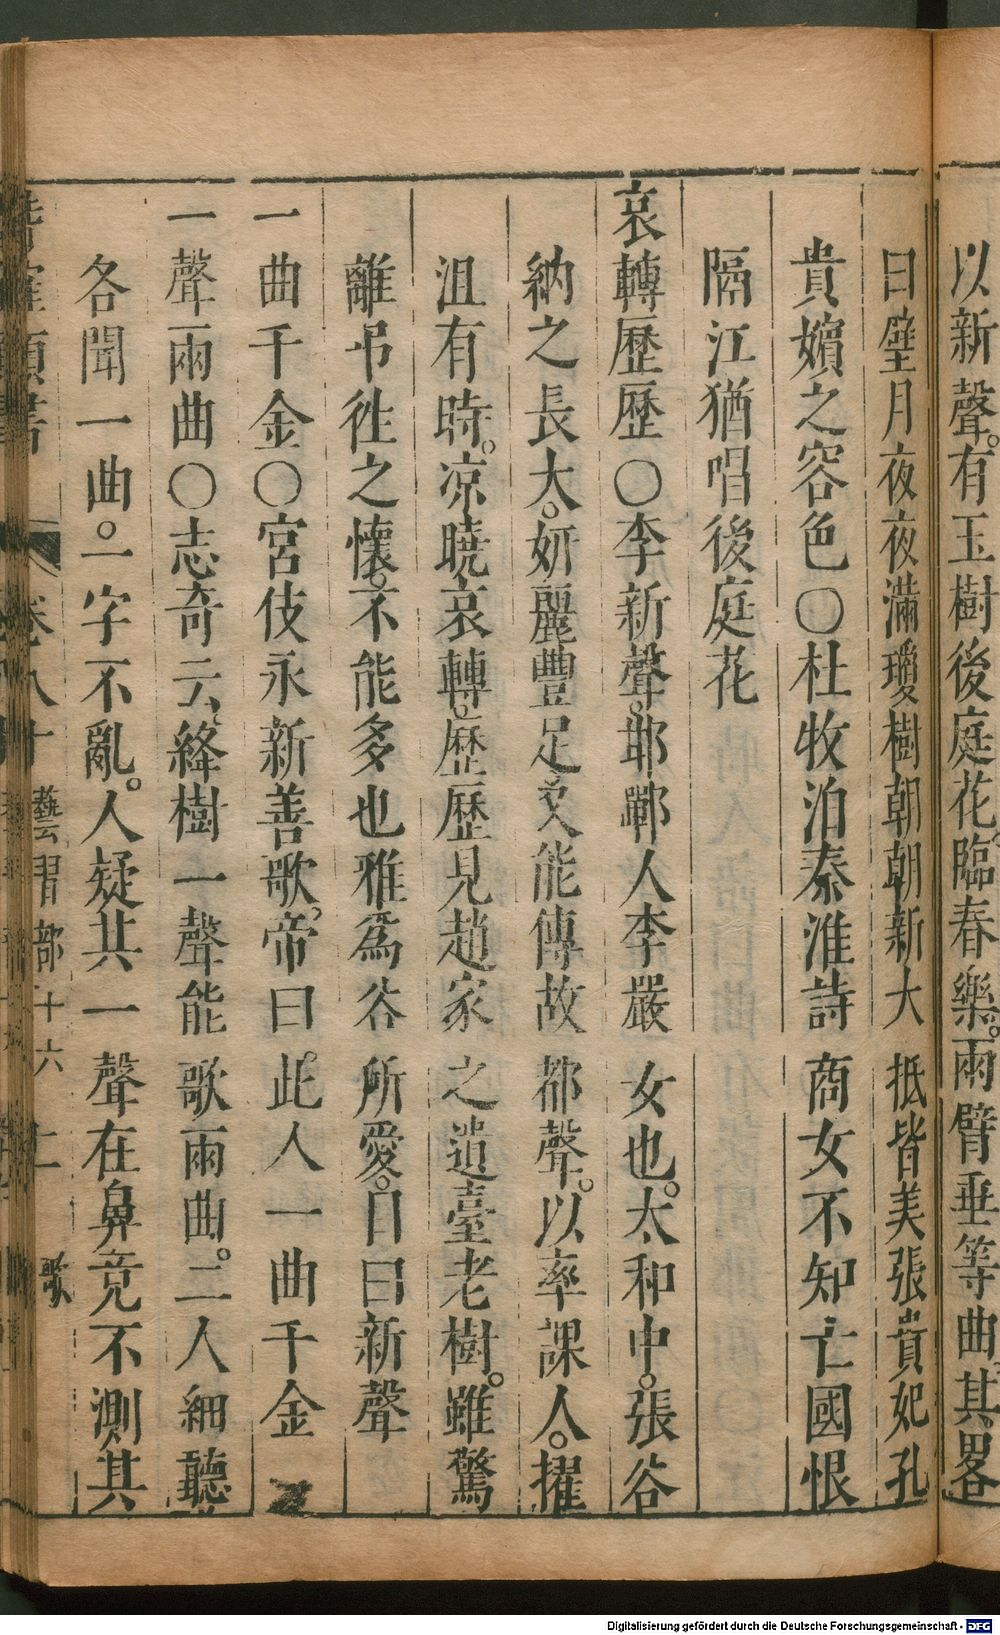 以新聲。有玉樹後庭花。臨春樂。兩臂垂等曲。其畧
曰璧月夜夜滿瓊樹朝朝新大抵皆美張貴妃孔
貴嬪之容色○杜牧泊秦淮詩商女不知亡國恨
隔江猶唱後庭花
哀轉歷歷○李新聲。邯鄲人李嚴女也。太和中。張谷
納之長大。妍麗豐足。又能傳故都聲。以率課人。擢
沮有時。凉曉哀轉。歷歷見趙家之遺臺老樹。雖驚
離弔徃之懷。不能多也雅爲谷所愛。目曰新聲
一曲千金○宮伎永新善歌。帝曰。此人一曲千金
一聲兩曲○志奇云、絳樹一聲能歌兩曲。二人細聽
各聞一曲。一字不亂。人疑其一聲在鼻竟不測其
卷八十 藝習部十六 歌
Digitalisierung gefördert durch die Deutsche Forschungsgemeinschaft - DFG